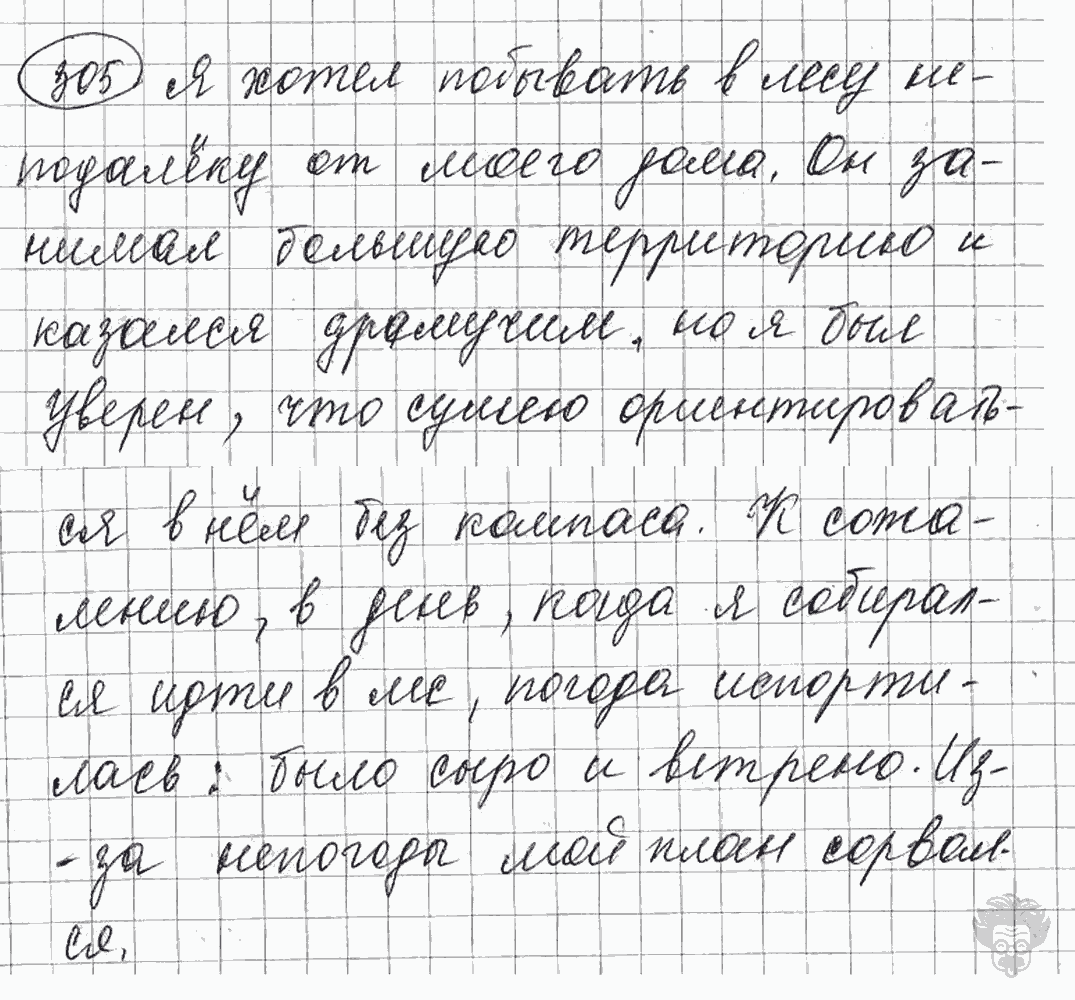 305 Я хотел побывать в лесу не-
подалёку от моего дома. Он за-
нимал большую территорию и
казался дремучим, но я был
уверен, что сумею ориентировать-
ся в нём без компаса. К сожа-
лению, в день, когда я собирал-
ся идти в лес, погода испорти-
лась: было сыро и ветрено. Из-
-за непогоды мой план сорвал-
ся.